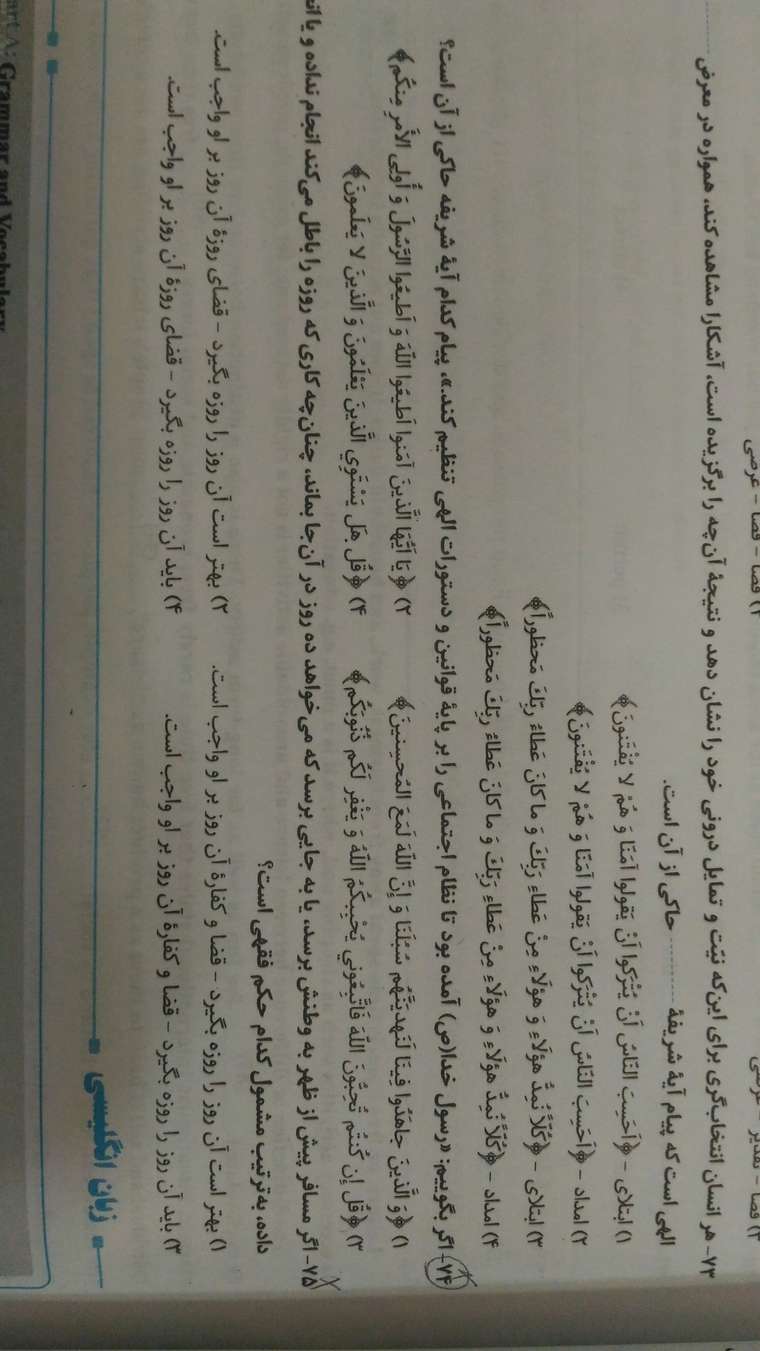 ۲) قضا - قضا - عرضی
۳) قضا - تقدیر - عرضی
۷۳- هر انسان انتخاب‌گری برای این‌که نیّت و تمایل درونی خود را نشان دهد و نتیجهٔ آن‌چه را برگزیده است، آشکارا مشاهده کند، همواره در معرض ..........
الهی است که پیام آیهٔ شریفهٔ .......... حاکی از آن است.
۱) ابتلای - ﴿أَحَسِبَ النّاسُ أَنْ یُتْرَکوا أَنْ یَقولوا آمَنّا وَ هُمْ لا یُفْتَنونَ﴾
۲) امداد - ﴿أَحَسِبَ النّاسُ أَنْ یُتْرَکوا أَنْ یَقولوا آمَنّا وَ هُمْ لا یُفْتَنونَ﴾
۳) ابتلای - ﴿کُلّاً نُمِدُّ هؤلَاءِ وَ هؤلَاءِ مِنْ عَطاءِ رَبِّکَ وَ ما کانَ عَطاءُ رَبِّکَ مَحظوراً﴾
۴) امداد - ﴿کُلّاً نُمِدُّ هؤلَاءِ وَ هؤلَاءِ مِنْ عَطاءِ رَبِّکَ وَ ما کانَ عَطاءُ رَبِّکَ مَحظوراً﴾
۷۴- اگر بگوییم: «رسول خدا(ص) آمده بود تا نظام اجتماعی را بر پایهٔ قوانین و دستورات الهی تنظیم کند.»، پیام کدام آیهٔ شریفه حاکی از آن است؟
۱) ﴿وَ الَّذینَ جاهَدُوا فِینَا لَنَهدیَنَّهُم سُبُلَنَا وَ إِنَّ اللّهَ لَمَعَ المُحسِنینَ﴾ ۲) ﴿یَا أَیُّهَا الَّذینَ آمَنوا أَطیعُوا اللّهَ وَ أَطیعُوا الرَّسُولَ وَ أُولِی الأَمرِ مِنکُم﴾
۳) ﴿قُل إِن کُنتُم تُحِبُّونَ اللّهَ فَاتَّبِعُونی یُحْبِبکُمُ اللّهُ وَ یَغْفِر لَکُم ذُنُوبَکُم﴾ ۴) ﴿قُل هَل یَسْتَوِی الَّذینَ یَعْلَمُونَ وَ الَّذینَ لا یَعلَمونَ﴾
۷۵- اگر مسافر پیش از ظهر به وطنش برسد، یا به جایی برسد که می‌خواهد ده روز در آن‌جا بماند، چنان‌چه کاری که روزه را باطل می‌کند انجام نداده و یا
داده، به‌ترتیب مشمول کدام حکم فقهی است؟
۱) بهتر است آن روز را روزه بگیرد - قضا و کفارهٔ آن روز بر او واجب است. ۲) بهتر است آن روز را روزه بگیرد - قضای روزهٔ آن روز بر او واجب است.
۳) باید آن روز را روزه بگیرد - قضا و کفارهٔ آن روز بر او واجب است. ۴) باید آن روز را روزه بگیرد - قضای روزهٔ آن روز بر او واجب است.
زبان انگلیسی
art A: Grammar and Vocabulary